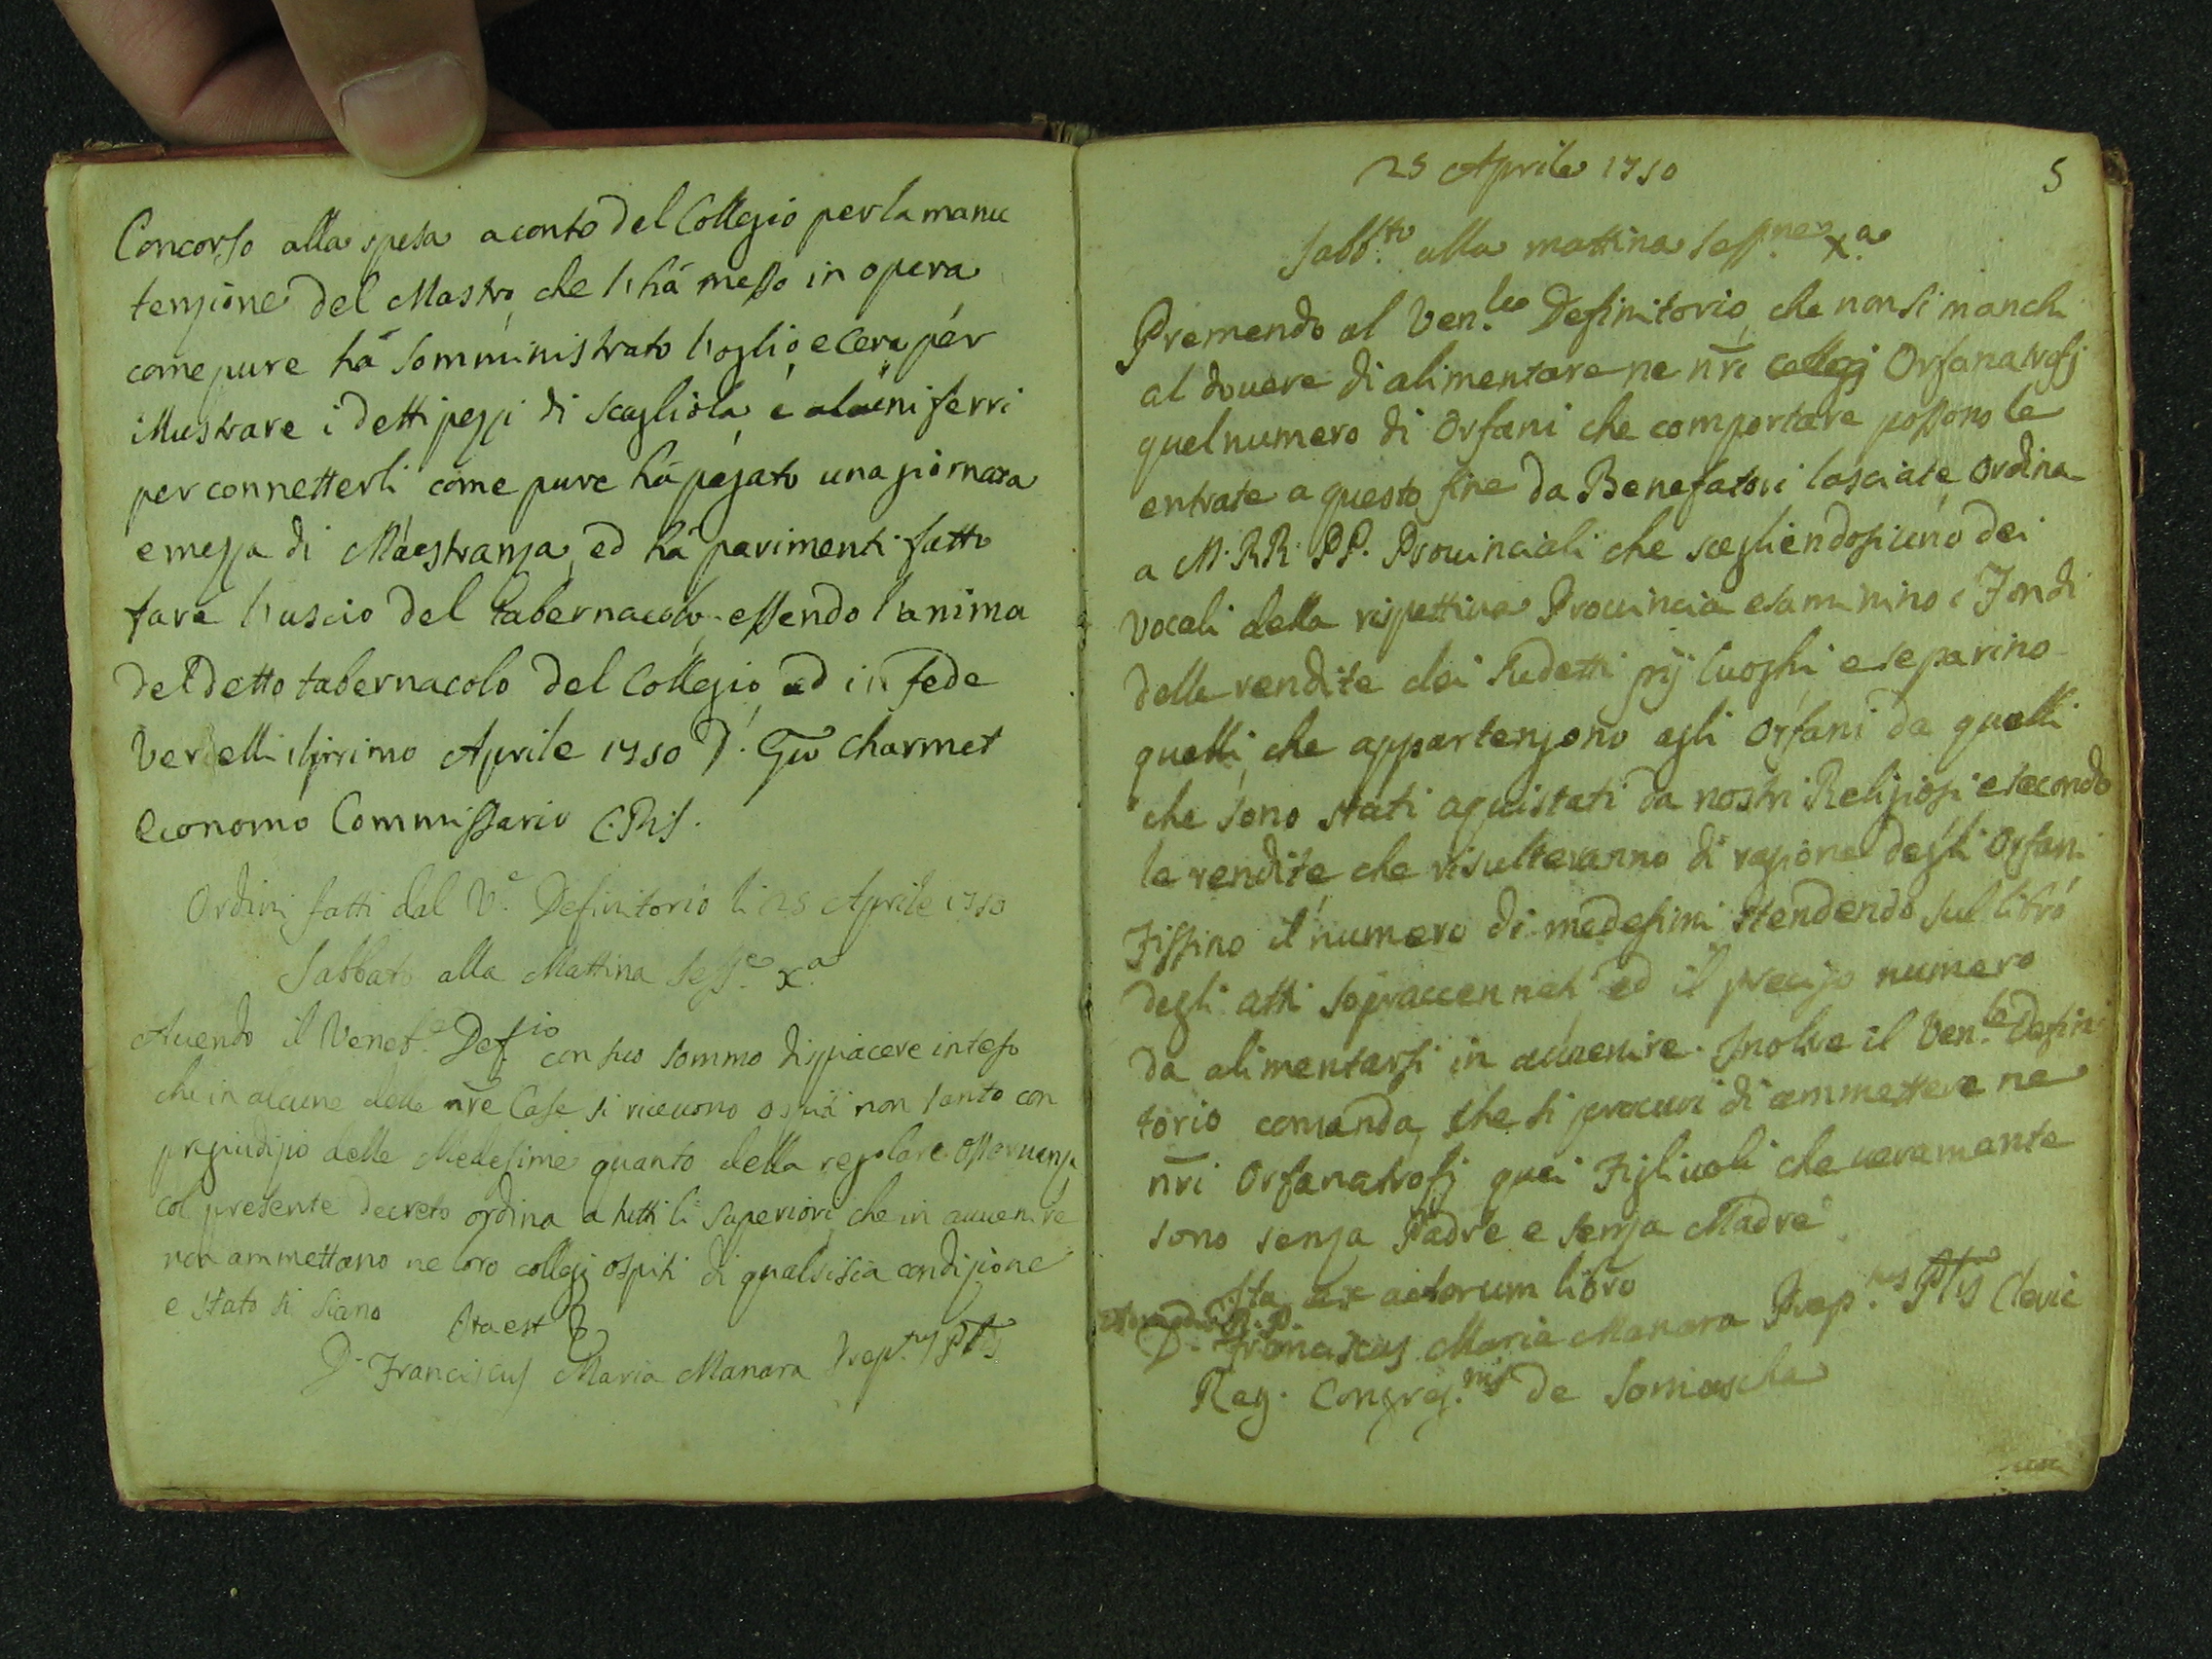 Concorso alla spesa a conto del Collegio per la manu
tenzione del Mastro, che l'hà messo in opera
come pure hà somministrato l'oglio, e Cera per
illustrare i detti pezzi di scagliola, e alcuni ferri
per connetterli come pure hà pagato una giornata
e mezza di Maestranza, ed hà parimenti fatto
fare l'uscio del tabernacolo, essendo l'anima
del detto tabernacolo del Collegio, ed in fede
Vercelli il primo Aprile 1750 D. Gio Charmet
Economo Commissario C.R.S.
Ordini fatti dal V.e Definitorio li 25 Aprile 1750
Sabbato alla Mattina Sess.e X.a
Avendo il Veneb.e Def.io con suo sommo dispiacere inteso
che in alcune delle nre Case si ricevono ospiti non tanto con
pregiudizio delle Medesime quanto della regolare osservanza
col presente decreto ordina a tutti li Superiori, che in avvenire
non ammettano ne loro collegj ospiti di qualsisia condizione
e stato si siano Ita est
D. Franciscus Maria Manara Prep.tus Gñlis
5
25 Aprile 1750
Sabb.to alla mattina Sess.ne X.a
Premendo al Ven.le Definitorio, che non si manchi
al dovere di alimentare ne nri collegj Orfanatrofj
quel numero di Orfani che comportare possono le
entrate a questo fine da Benefatori lasciate, ordina
a M. RR. PP. Provinciali che scegliendosi uno dei
Vocali della rispettiva Provincia esaminino i Fondi
delle rendite dei sudetti pij luoghi e separino
quelli, che appartengono agli Orfani da quelli
che sono stati aquistati da nostri Religiosi e secondo
le rendite che risulteranno di ragione degli Orfani
Fissino il numero di medesimi stendendo sul libro
degli atti sopraccennati ed il preciso numero
da alimentarsi in avvenire. Inoltre il Ven.le Defini
torio comanda, che si procuri di ammettere ne
nri Orfanatrofj quei Figlivoli che veramente
sono senza Padre e senza Madre
Ita ex actorum libro
R. P.
D. Franciscus Maria Manara Prep.tus Gñlis Cleric
Reg. Congreg.nis de Somascha